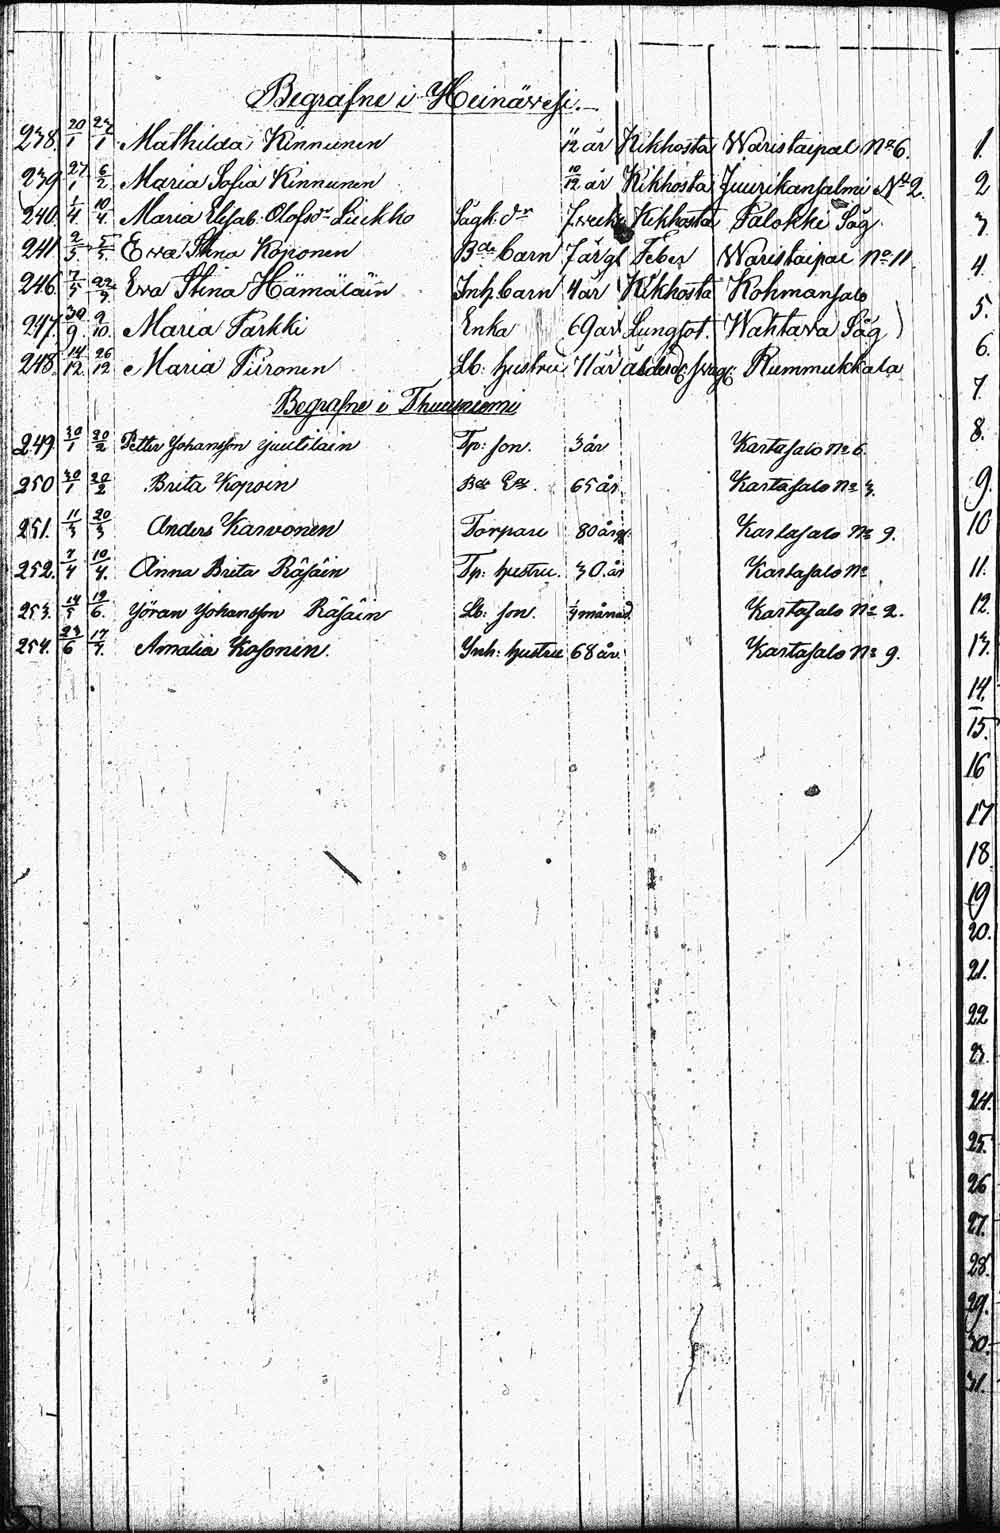 Begrafne i Heinävesi.
238. 20/1 27/1 Mathilda Kinnunen 11/12 år Kikhosta Waristaipal No 6.
239. 27/1 6/2 Maria Sofia Kinnunen 10/12 år Kikhosta Juurikansalmi No 2.
240. 1/4 10/4 Maria Elisab. Olofsdr Liekko Sågk. dr 7 veck Kikhosta Palokki Såg
241. 2/5 5/5 Ewa Stina Koponen Bde barn 7 årg Feber Waristaipal No 11
246. 7/5 22/7 Eva Stina Hämäläin Inh. barn 4 år Kikhosta Kohmansalo
247. 30/9 2/10 Maria Parkki Enka 69 år Lungsot. Wahtava Såg
248. 14/12 26/12 Maria Piironen Lb: hustru 71 år ålderd. svag: Rummukkala
Begrafne i Thuusniemi
249. 30/1 20/2 Petter Johansson Juutilain Tp: son. 3 år Kartasalo No 6.
250 30/1 20/2 Brita Kopoin Bde 65 år Kartasalo No 3.
251. 11/3 20/3 Anders Karvonen Torpare 80 årg. Kartasalo No 9.
252. 7/4 10/4. Anna Brita Räsäin Tp: hustru. 30. år Kartasalo No
253. 14/5 19/6. Jöran Johansson Räsäin Lb: son. månad. Kartasalo No 2.
254. 23/6 17/7. Amalia Kosonen. Inh: hustru 68 år Kartasalo No 9.
1.
2
3
4.
5.
6.
7.
8.
9.
10
11.
12.
13.
14.
15.
16
17
18
19
20.
21.
22
23.
24.
25.
26
27.
28.
29.
30.
31.